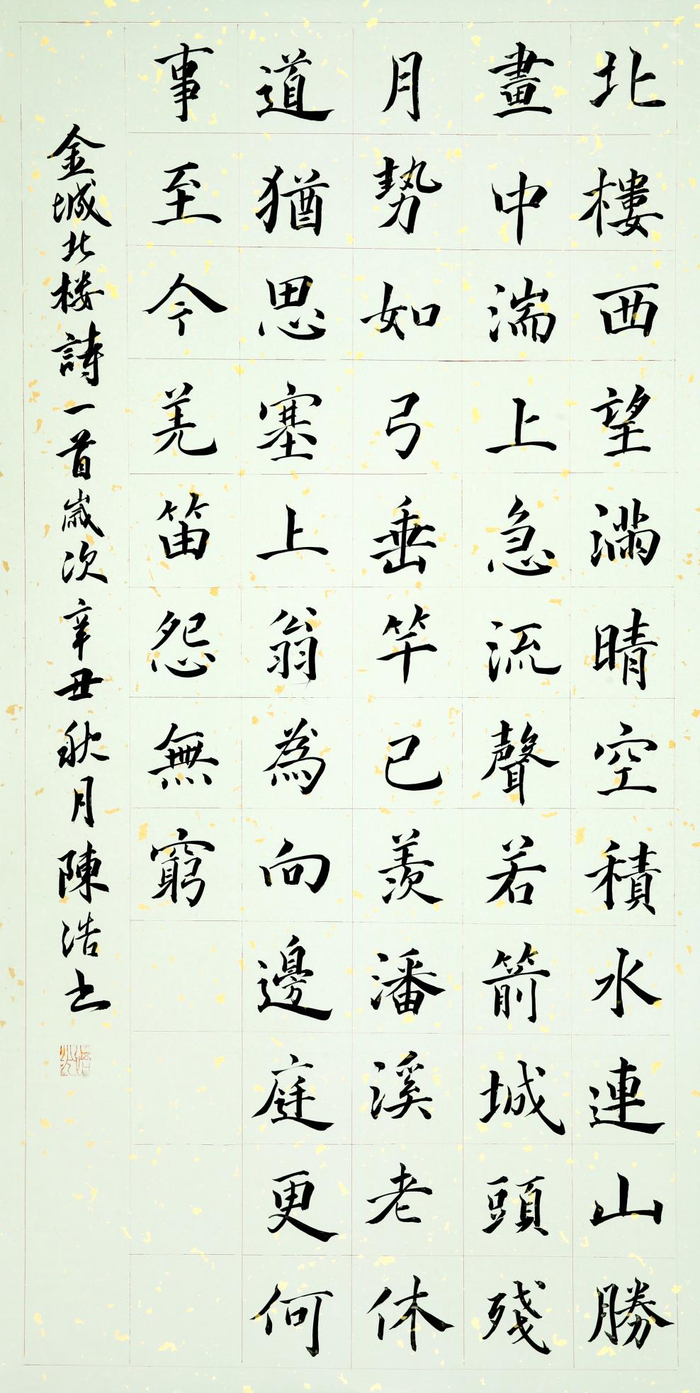 北樓西望滿晴空積水連山勝
畫中湍上急流聲若箭城頭殘
月勢如弓垂竿已羨潘溪老休
道猶思塞上翁為向邊庭更何
事至今羌笛怨無窮
金城北楼詩一首歲次辛丑秋月陳浩书